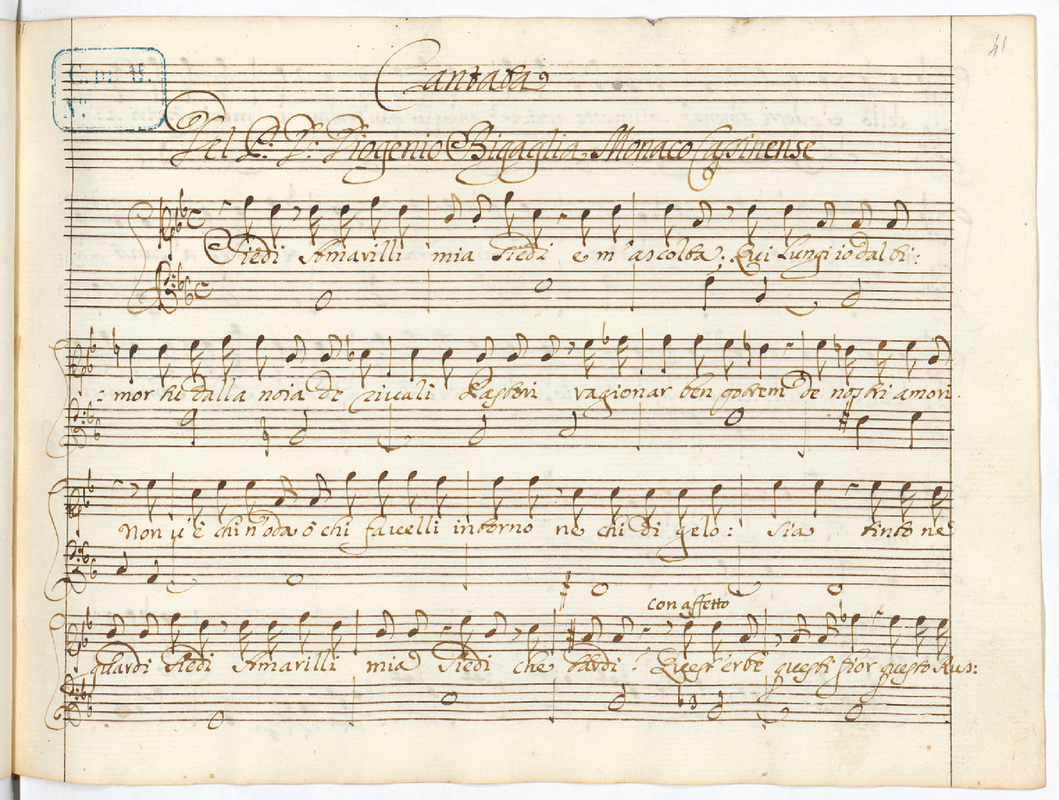 41
Cantata
Del P. D. Diogenio Bigaglia Monaco Casinense
Siedi Amarilli mia siedi e m'ascolta: Qui lungi io dal bi:
:mor tù dalla noia de rivali Pastori ragionar ben potrem de nostri amori.
Non v'è chi n'oda ò chi favelli intorno ne chi di gelo: sia tinto ne
guardi siedi Amarilli mia siedi che tardi?
con affetto
Quest'erbe questi fior questo Rus: